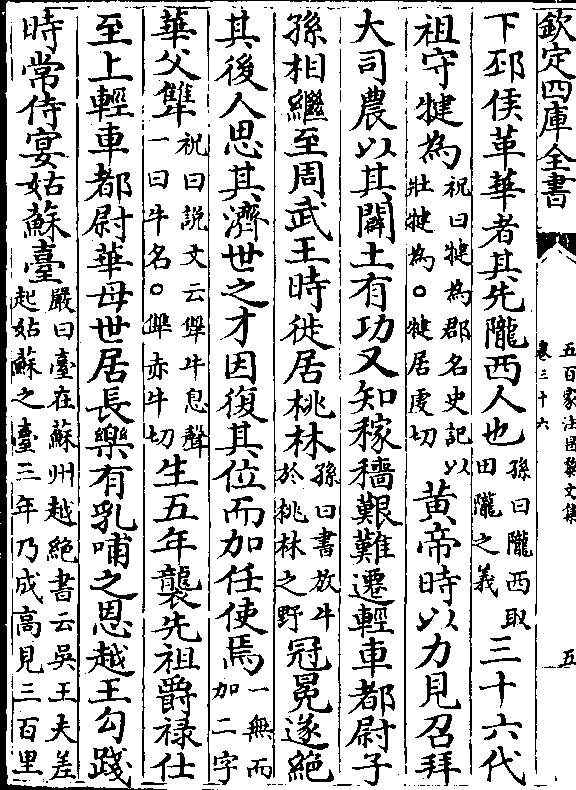 欽定四庫全書
五百家注昌黎文集
卷三十六
五
下邳侯革華者其先隴西人也孫曰隴西取田隴之義三十六代
祖守犍為祝曰犍為郡名史記以壯犍為。犍居䖍切黄帝時以力見召拜
大司農以其闢土有功又知稼穡艱難遷輕車都尉子
孫相繼至周武王時徙居桃林孫曰書放牛於桃林之野冠冕遂絕
其後人思其濟世之才因復其位而加任使焉一無而加二字
華父犨祝曰說文云犨牛息聲一曰牛名。犨赤牛切生五年襲先祖爵祿仕
至上輕車都尉華母世居長樂有乳哺之恩越王勾踐
時常侍宴姑蘇臺嚴曰臺在蘇州越絕書云吳王夫差起姑蘇之臺三年乃成高見三百里